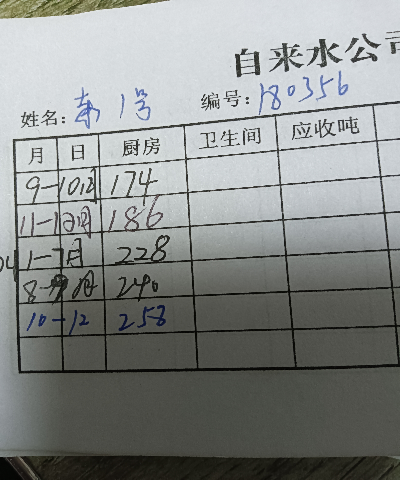 自来水公司
姓名: 1号 编号: 180356
月 日 厨房 卫生间 应收吨
9-10月 174
11-12月 186
1-7月 228
8-9月 240
10-12 258